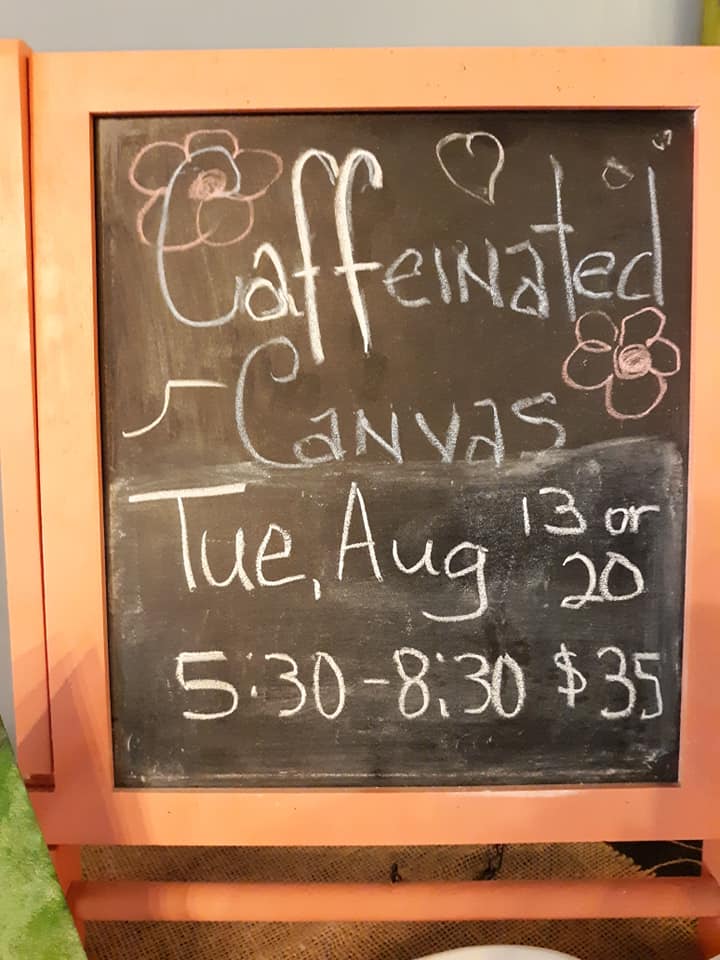 Caffeinated
Canvas
Tue, Aug 13 or
20
5:30-8:30 $35